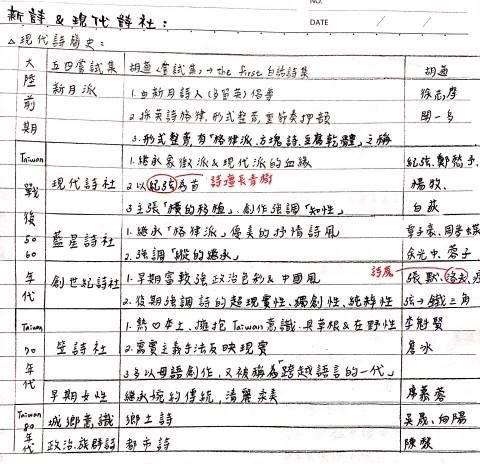 NO.
新詩 & 現代詩社:
DATE / /
△現代詩簡史:
大陸前期 五四嘗試集 胡適《嘗試集》→ the first 白話詩集 胡適
新月派 1.由新月詩人(多留英)倡導 徐志摩
2.採英詩格律,形式整齊,重節奏押韻 聞一多
3.形式整齊,有「格律派、方塊詩、豆腐乾體」之稱
Taiwan 戰後 50 60 年代 現代詩社 1.繼承象徵派&現代派的血緣 紀弦、鄭愁予、
2.以紀弦為首 詩壇長青樹 楊牧、
3.主張「橫的移植」、創作強調「知性」 白萩
藍星詩社 1.繼承「格律派」優美的抒情詩風 覃子豪、周夢蝶
2.強調「縱的繼承」 余光中、蓉子
詩魔
創世紀詩社 1.早期富較強政治色彩&中國風 張默、洛夫、
2.後期強調詩的超現實性、獨創性、純粹性 弦→鐵三角
Taiwan 70 年代 笠詩社 1.熱♡本土、擁抱Taiwan意識、具草根&在野性 李魁賢
2.寫實主義手法反映現實 詹冰
3.多以母語創作,又被稱為「跨越語言的一代」
早期女性 繼承婉約傳統,清麗柔美 席慕蓉
Taiwan 80 年代 城鄉意識 鄉土詩 吳晟、向陽
政治、族群詩 都市詩 陳黎